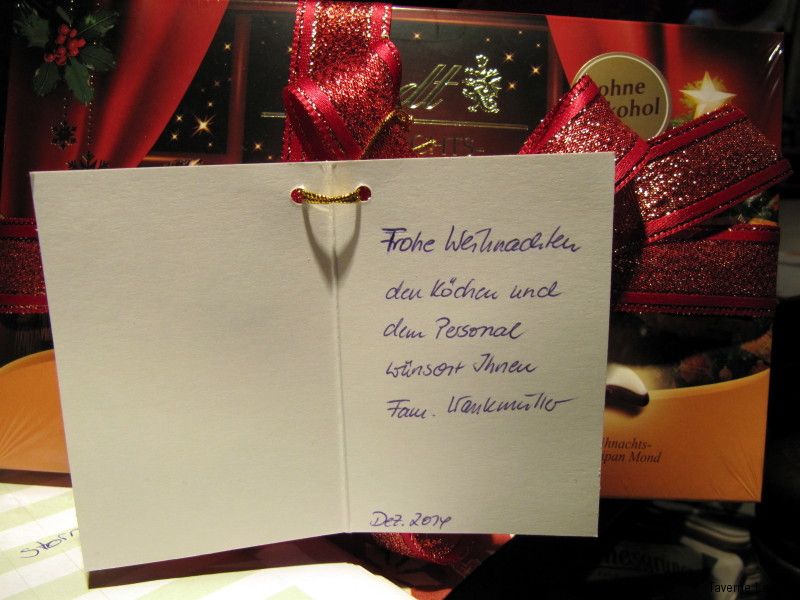 dt
ohne
kohol
HTS-
Frohe Weihnachten
den Köchen und
dem Personal
wünscht Ihnen
Fam. Wankmüller
Dez. 2014
hnachts-
ipan Mond
taverne